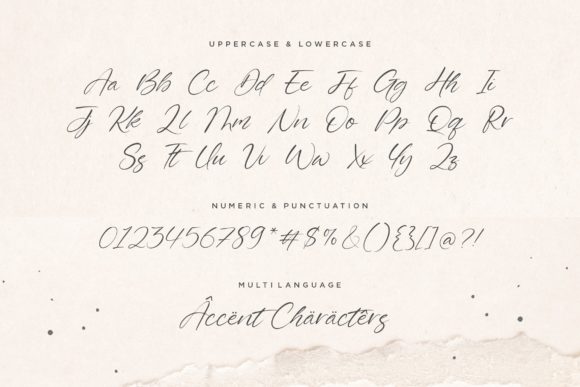 UPPERCASE & LOWERCASE
Aa Bb Cc Dd Ee Ff Gg Hh Ii
Jj Kk Ll Mm Nn Oo Pp Qq Rr
Ss Tt Uu Vv Ww Xx Yy Zz
NUMERIC & PUNCTUATION
0123456789*#$%&(){}[]@?!
MULTI LANGUAGE
Âccënt Chäräctêrs